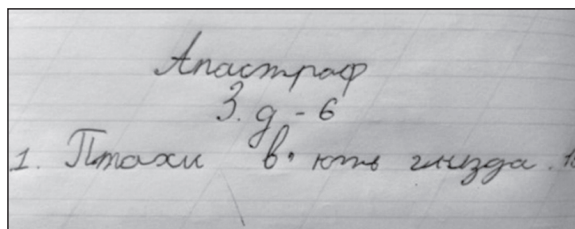 Апастраф
З. д - 6
1. Птахи в. ють гнизда.